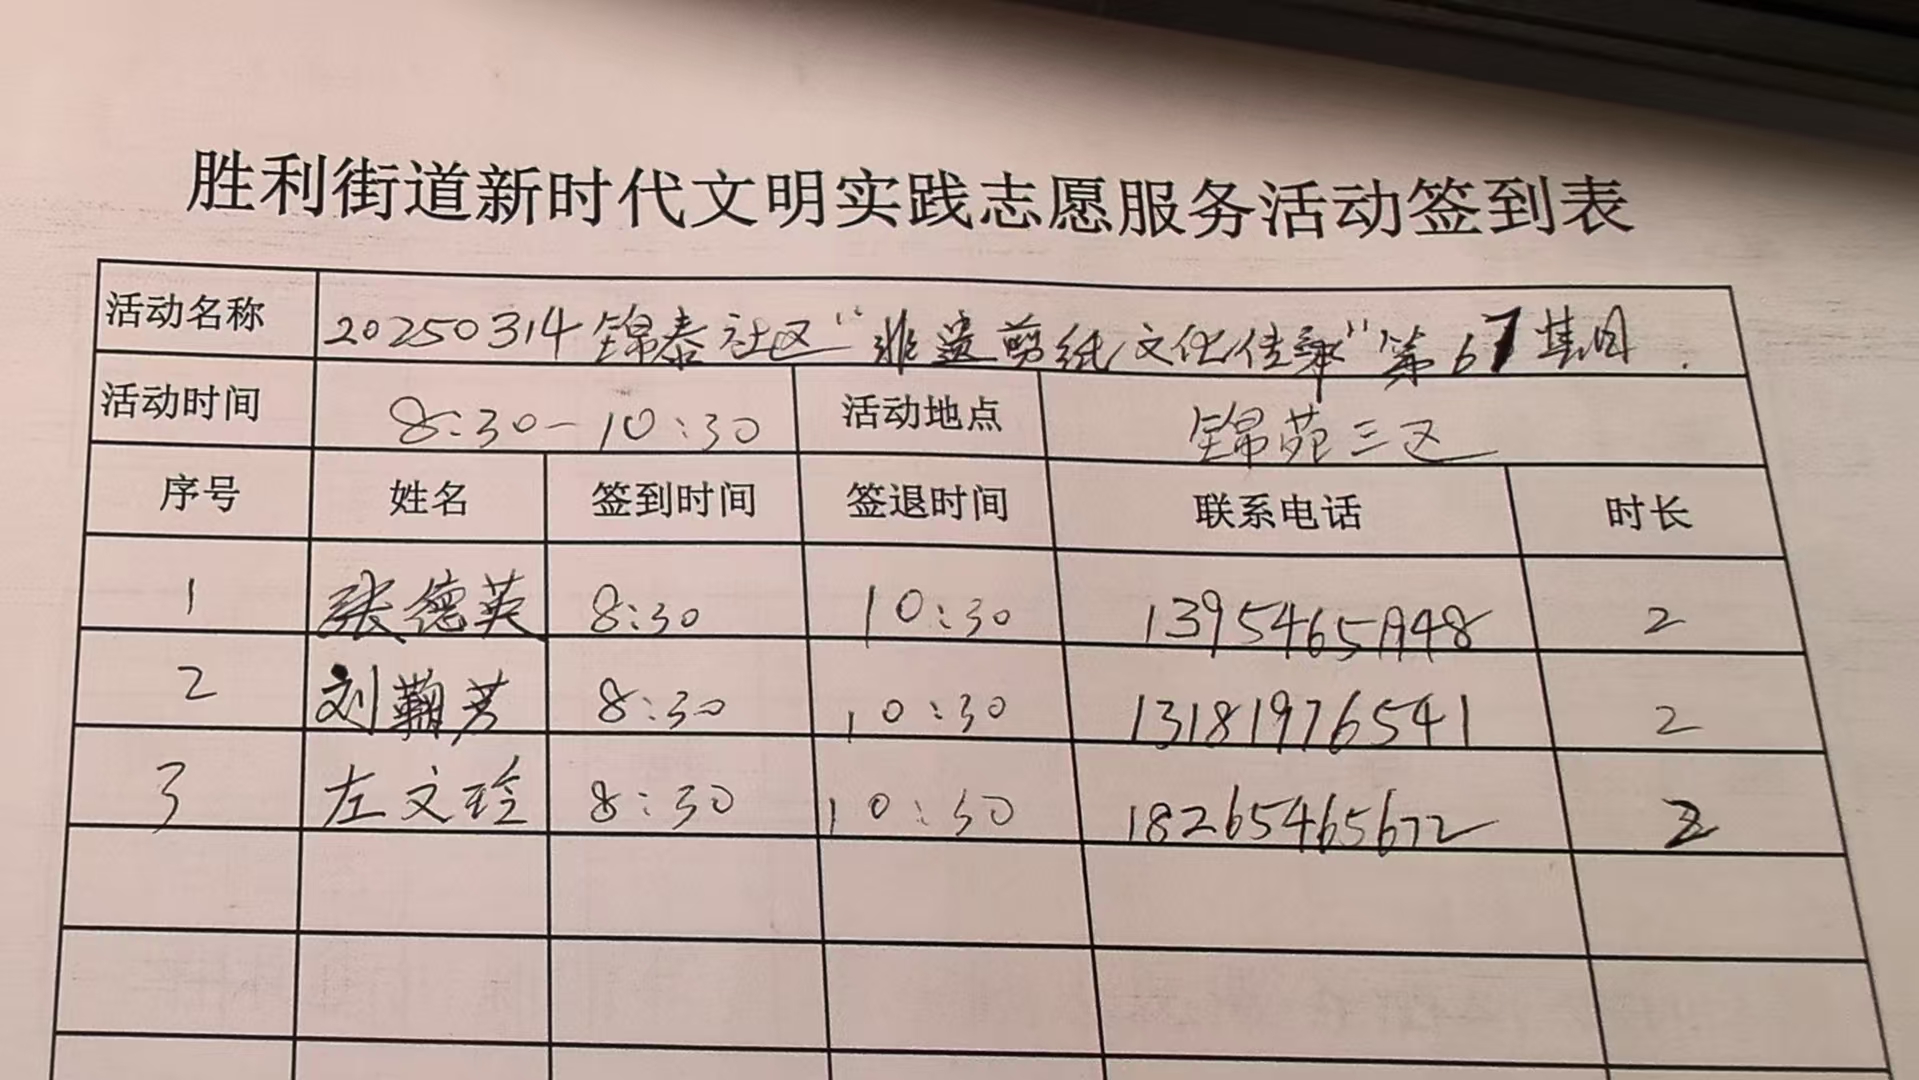 胜利街道新时代文明实践志愿服务活动签到表
活动名称 20250314锦泰社区“非遗剪纸文化传承”第67集目.
活动时间 8:30-10:30 活动地点 锦苑三区
序号 姓名 签到时间 签退时间 联系电话 时长
1 张德英 8:30 10:30 13954651948 2
2 刘鞠芳 8:30 10:30 13181976541 2
3 左文玲 8:30 10:30 18265465672 2